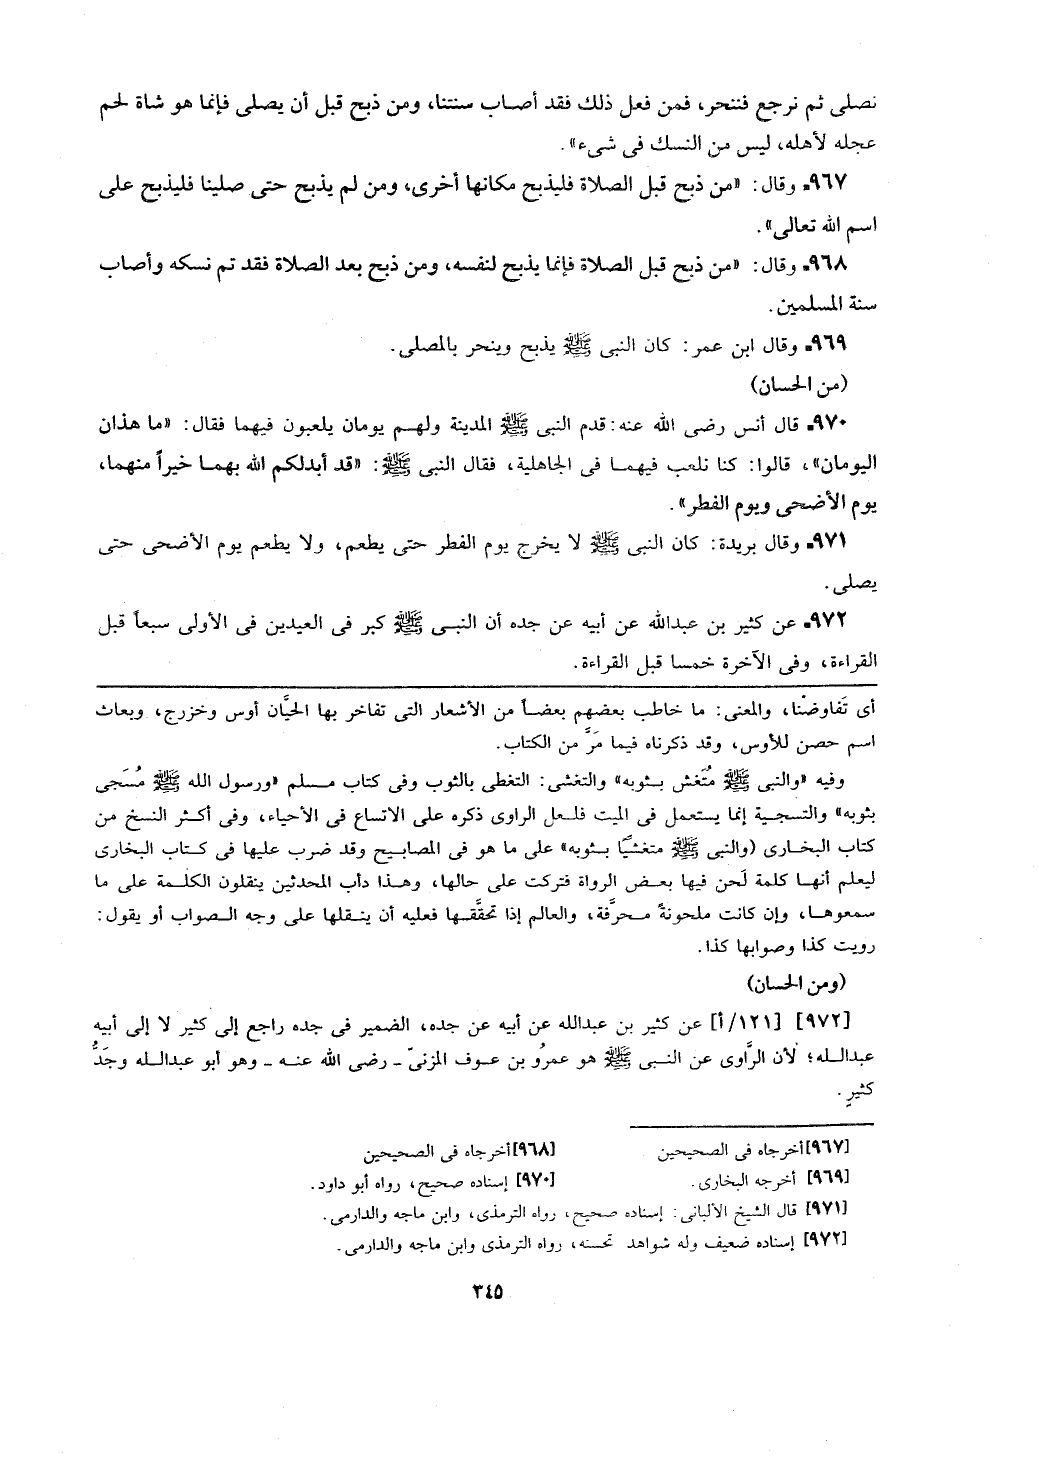 نصلى ثم نرجع فننحر، فمن فعل ذلك فقد أصاب سنتنا، ومن ذبح قبل أن يصلى فإنما هو شاة لحم
عجله لأهله، ليس من النسك فى شىء».
٩٦٧ـ وقال: «من ذبح قبل الصلاة فليذبح مكانها أخرى، ومن لم يذبح حتى صلينا فليذبح على
اسم الله تعالى».
٩٦٨ـ وقال: «من ذبح قبل الصلاة فإنما يذبح لنفسه، ومن ذبح بعد الصلاة فقد تم نسكه وأصاب
سنة المسلمين.
٩٦٩ـ وقال ابن عمر: كان النبى ﷺ يذبح وينحر بالمصلى.
(من الحسان)
٩٧٠ـ قال أنس رضى الله عنه: قدم النبى ﷺ المدينة ولهم يومان يلعبون فيهما فقال: «ما هذان
اليومان»، قالوا: كنا نلعب فيهما فى الجاهلية، فقال النبى ﷺ: «قد أبدلكم الله بهما خيراً منهما،
يوم الأضحى ويوم الفطر».
٩٧١ـ وقال بريدة: كان النبى ﷺ لا يخرج يوم الفطر حتى يطعم، ولا يطعم يوم الأضحى حتى
يصلى.
٩٧٢ـ عن كثير بن عبدالله عن أبيه عن جده أن النبى ﷺ كبر فى العيدين فى الأولى سبعاً قبل
القراءة، وفى الآخرة خمسا قبل القراءة.
أى تَفاوضْنا، والمعنى: ما خاطب بعضهم بعضاً من الأشعار التى تفاخر بها الحيَّان أوس وخزرج، وبعاث
اسم حصن للأوس، وقد ذكرناه فيما مَرَّ من الكتاب.
وفيه «والنبى ﷺ مُتَغش بثوبه» والتغشى: التغطى بالثوب وفى كتاب مسلم «ورسول الله ﷺ مُسَجى
بثوبه» والتسجية إنما يستعمل فى الميت فلعل الراوى ذكره على الاتساع فى الأحياء، وفى أكثر النسخ من
كتاب البخارى (والنبى ﷺ متغشيًا بثوبه» على ما هو فى المصابيح وقد ضرب عليها فى كتاب البخارى
ليعلم أنها كلمة لَحن فيها بعض الرواة فتركت على حالها، وهذا دأب المحدثين ينقلون الكلمة على ما
سمعوها، وإن كانت ملحونةً محرَّفة، والعالم إذا تحقَّقها فعليه أن ينقلها على وجه الصواب أو يقول:
رويت كذا وصوابها كذا.
(ومن الحسان)
[٩٧٢] [١٢١/أ] عن كثير بن عبدالله عن أبيه عن جده، الضمير فى جده راجع إلى كثير لا إلى أبيه
عبدالله؛ لأن الرَّاوى عن النبى ﷺ هو عمرُو بن عوف المزنىّ ـ رضى الله عنه ـ وهو أبو عبدالله وجَدُّ
كثيرٍ.
[٩٦٧] أخرجاه فى الصحيحين
[٩٦٨] أخرجاه فى الصحيحين
[٩٦٩] أخرجه البخارى.
[٩٧٠] إسناده صحيح، رواه أبو داود.
[٩٧١] قال الشيخ الألبانى: إسناده صحيح، رواه الترمذى، وابن ماجه والدارمى.
[٩٧٢] إسناده ضعيف وله شواهد تحسنه، رواه الترمذى وابن ماجه والدارمى.
٣٤٥